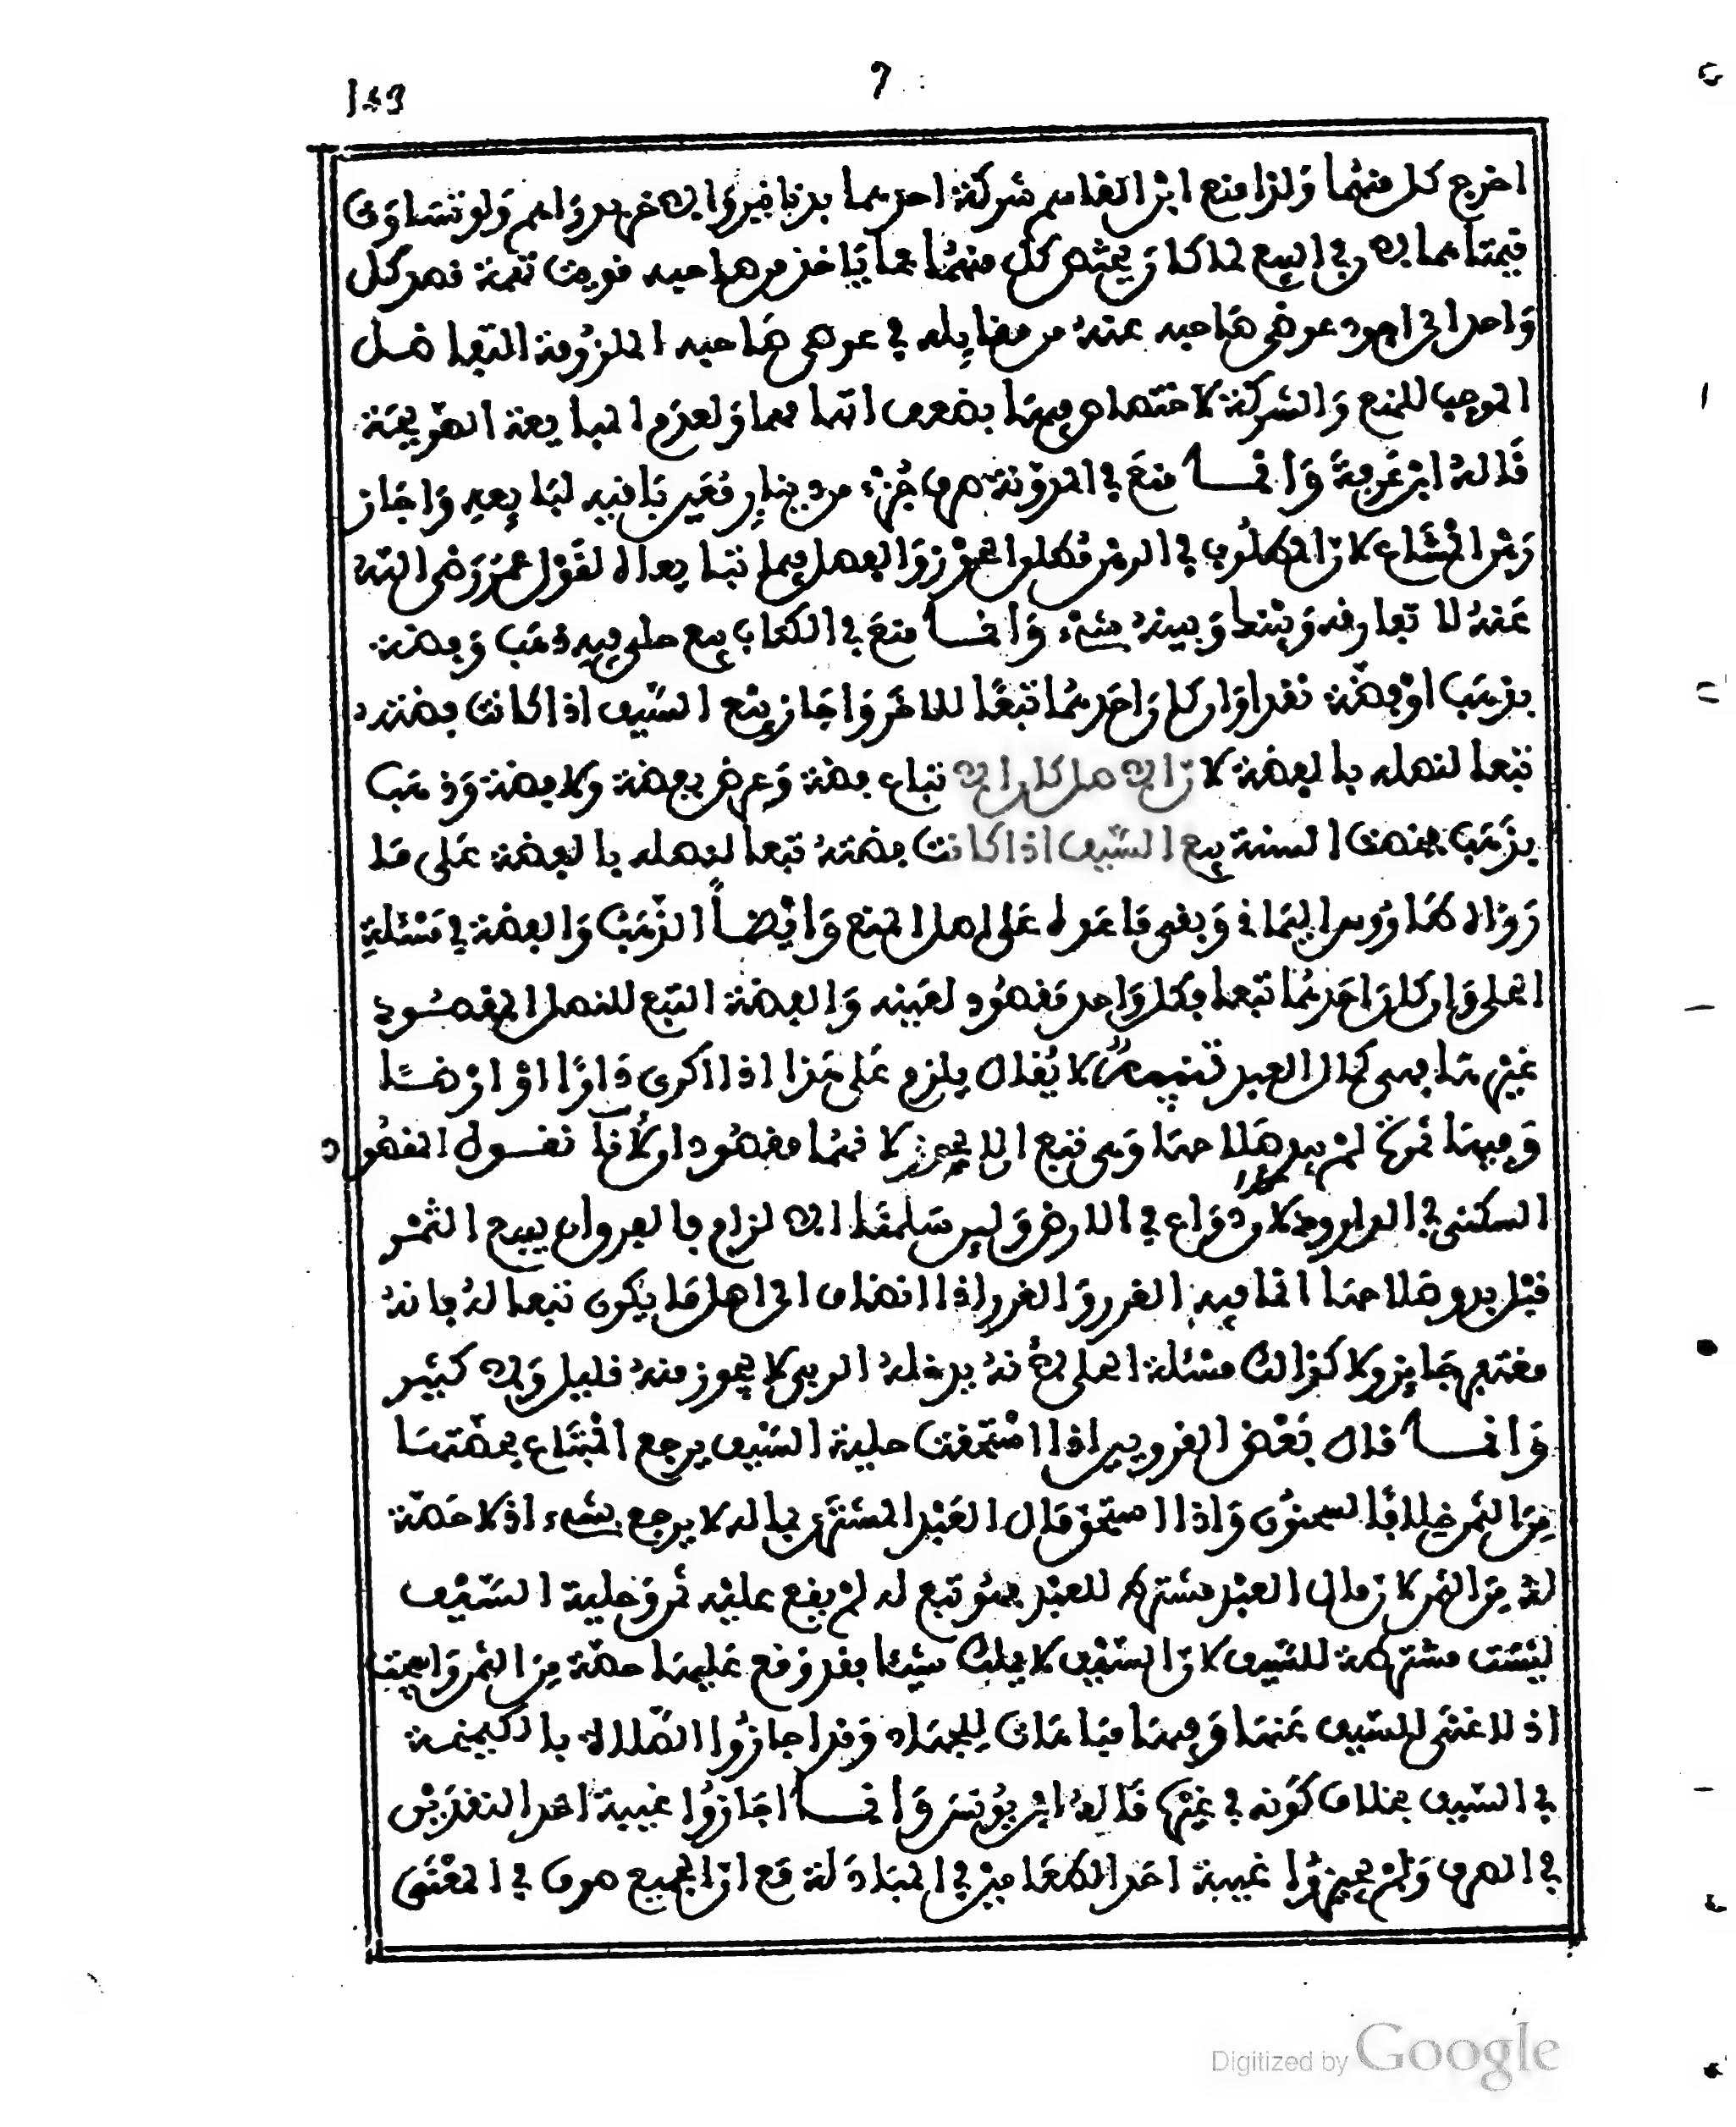 7
169
اخرج كل منهما ولذا منع ابن القاسم شركة احدهما بدنانير والاخر بدراهم ولو تساوت
قيمتاهما لان في البيع لما كان يختص كل منهما بما ياخذ من صاحبه قويت تهمة قصد كل
واحد الى اجود عرض صاحبه عنده من مقابله في عوض صاحبه الملزومة التفاضل
الموجب للمنع والشركة لاختصاص فيها بضعف اتهامهما ولعدم المبايعة الصريحة
قاله ابن عرفة وانما منع في المدونة صرف جزء من دينار معير باقيه لبايعه واجاز
رهن المشاع لان المطلوب في الرهن مطلق الحوز والفصل فيما تبايعاه لقول عمر رضي الله
عنه لا تفارقه وبينك وبينه شيء وانما منع في الكتاب بيع حلي فيه ذهب وفضة
بذهب او فضة نقدا وان كان احدهما تبعا للاخر واجاز بيع السيف اذا كانت فضته
تبعا لنصله بالفضة لان الاصل ان لا تباع فضة وعرض بفضة ولا فضة وذهب
بذهب فخصت السنة بيع السيف اذا كانت فضته تبعا لنصله بالفضة على ما
رواه طاووس اليماني وبقي ما عداه على اصل المنع وايضا الذهب والفضة في مسئلة
الحلي وان كان احدهما تبعا فكل واحد مقصود لعينه والفضة التبع للنصل المقصود
غيرها فهي كمال العبد تنبيه لا يقال يلزم على هذا اذا اكرى دارا او ارضا
وفيها ثمرة لم يبد صلاحها وهي تبع ان لا يجوز لانهما مقصودان لانا نقول المقصود
السكنى في الدار والازدراع في الارض وليس سلمنا ان لزام فالفرق ان بيع الثمر
قبل بدو صلاحها انما فيه الغرر والغرر اذا انضاف الى اصل ما يكون تبعا له فانه
مغتفر جايز ولا كذلك مسئلة الحلي لانه يدخله الربى لا يجوز منه قليل ولا كثير
وانما قال بعض القرويين اذا استحقت حلية السيف يرجع المبتاع بحصتها
من الثمن خلافا لسحنون واذا استحق مال العبد المشترى بماله لا يرجع بشيء اذ لا حصة
له من الثمن لان مال العبد مشترط للعبد فهو تبع له لم يقع عليه ثمن وحلية السيف
ليست مشترطة للسيف لان السيف لا يملك شيئا فقد وقع عليها حصة من الثمن وايضا
اذ لا غنى للسيف عنها وفيها مباهات للجهاد وقد اجازوا الطلاء بالكيمخت
في السيف بخلاف كونه في غيرها قاله ابن يونس وانما اجازوا غيبة احد النقدين
في الصرف ولم يجيزوا غيبة احد الطعامين في المبادلة مع ان الجميع صرف في المعنى